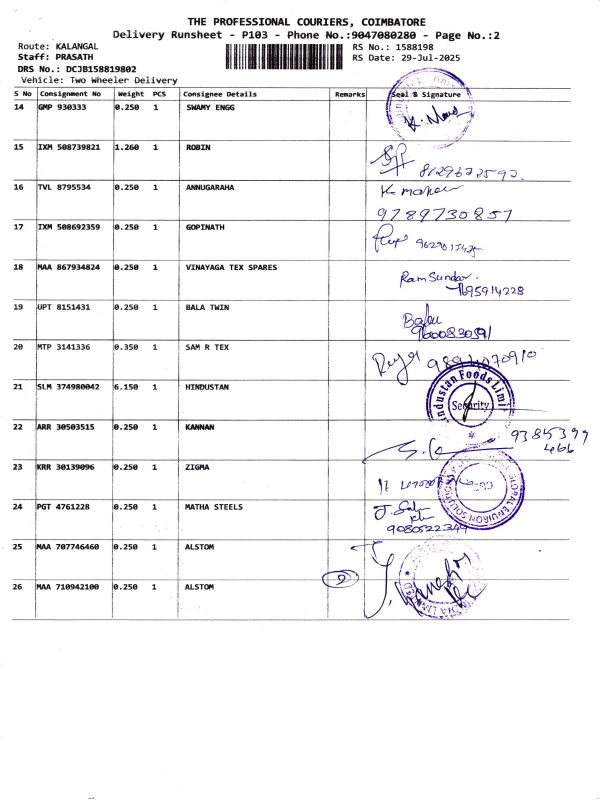 THE PROFESSIONAL COURIERS, COIMBATORE
Delivery Runsheet - P103 - Phone No.:9047080280 - Page No.:2
Route: KALANGAL RS No.: 1588198
Staff: PRASATH RS Date: 29-Jul-2025
DRS No.: DCJB158819802
Vehicle: Two Wheeler Delivery
S No Consignment No Weight PCS Consignee Details Remarks Seal & Signature
14 GMP 930333 0.250 1 SWAMY ENGG
15 IXM 508739821 1.260 1 ROBIN
16 TVL 8795534 0.250 1 ANNUGARAHA
9789730857
17 IXM 508692359 0.250 1 GOPINATH
18 MAA 867934824 0.250 1 VINAYAGA TEX SPARES
Ram Sundar.
7695914228
19 UPT 8151431 0.250 1 BALA TWIN
Babu
20 MTP 3141336 0.350 1 SAM R TEX
9894070910
21 SLM 374980042 6.150 1 HINDUSTAN
Hindustan Foods Limi
Security
22 ARR 30503515 0.250 1 KANNAN
9385399
466
23 KRR 30139096 0.250 1 ZIGMA
GLOBAL ENVIRON SOLUTIONS
24 PGT 4761228 0.250 1 MATHA STEELS
25 MAA 707746460 0.250 1 ALSTOM
26 MAA 710942100 0.250 1 ALSTOM
2